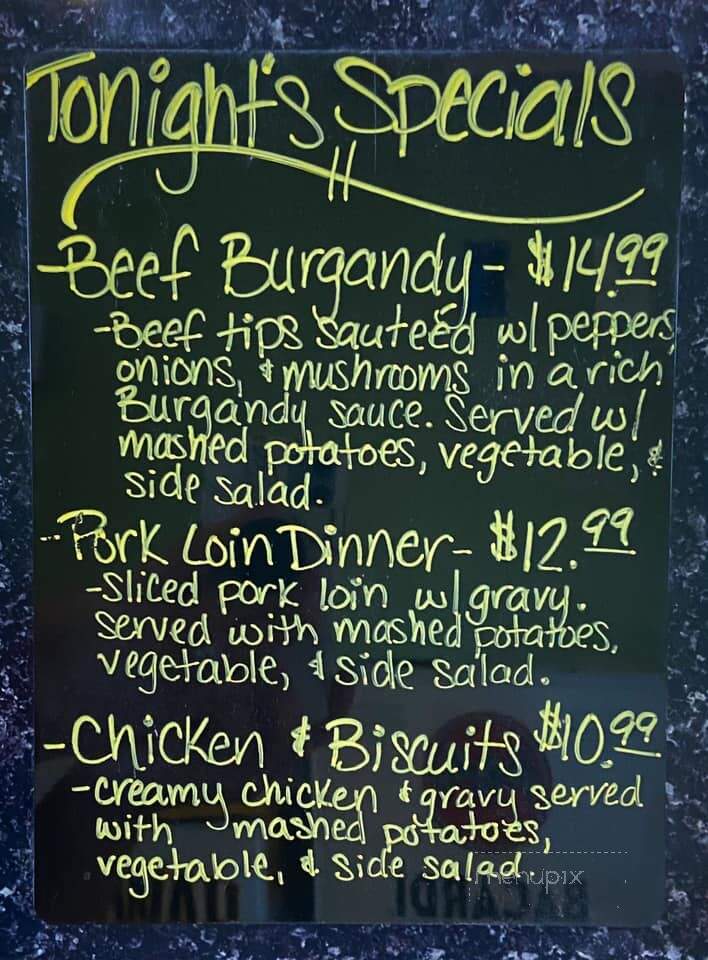 Tonight's Specials
-Beef Burgandy- $14.99
-Beef tips sauteéd w/ peppers,
onions, & mushrooms in a rich
Burgandy sauce. Served w/
mashed potatoes, vegetable, &
side salad.
-Pork Loin Dinner- $12.99
-Sliced pork loin w/ gravy.
Served with mashed potatoes,
vegetable, & side salad.
-Chicken & Biscuits $10.99
-creamy chicken & gravy served
with mashed potatoes,
vegetable, & side salad.
menupix
BACARDI